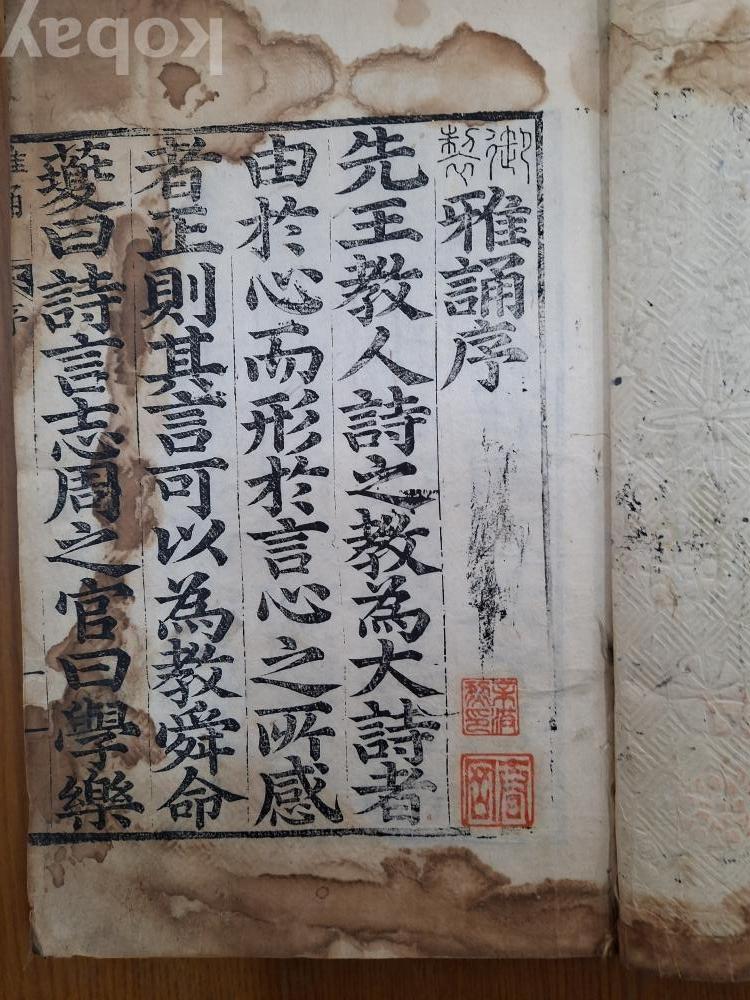 御製
雅誦序
先王教人詩之教為大詩者
由於心而形於言心之所感
者正則其言可以為教舜命
夔曰詩言志周之官曰學樂
雅誦
序
一
kobay